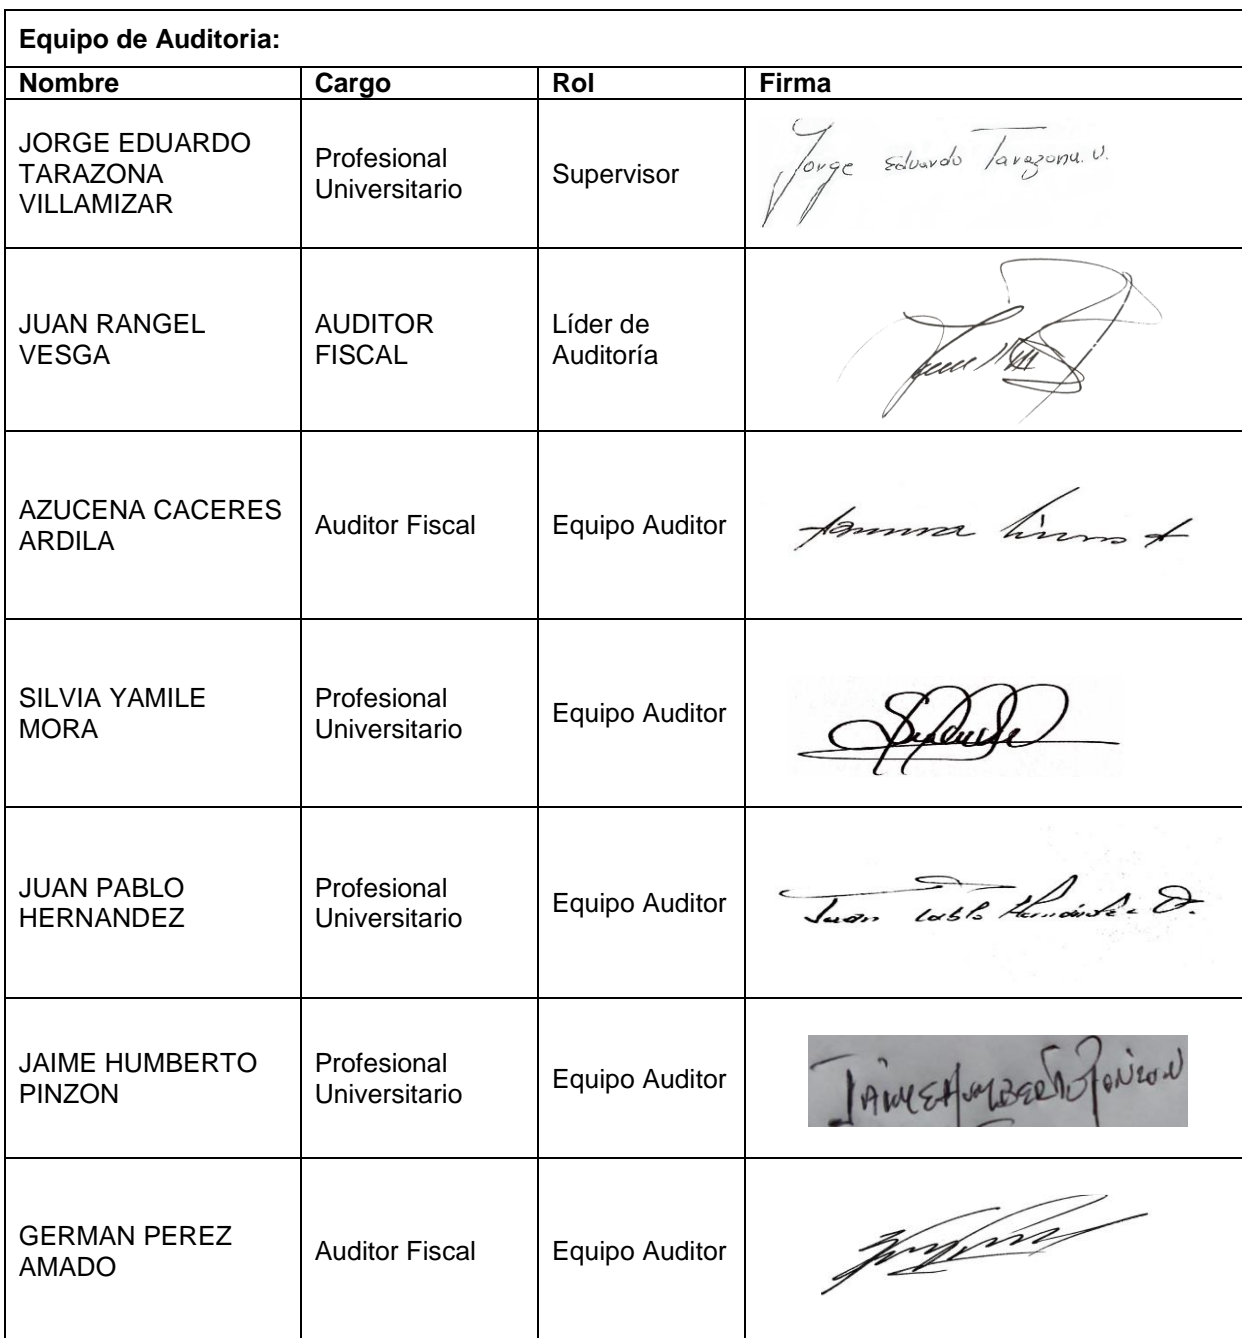 Equipo de Auditoria:
Nombre Cargo Rol Firma
JORGE EDUARDO
TARAZONA
VILLAMIZAR
Profesional
Universitario
Supervisor
Jorge Eduardo Tarazona. V.
JUAN RANGEL
VESGA
AUDITOR
FISCAL
Líder de
Auditoría
AZUCENA CACERES
ARDILA
Auditor Fiscal
Equipo Auditor
SILVIA YAMILE
MORA
Profesional
Universitario
Equipo Auditor
JUAN PABLO
HERNANDEZ
Profesional
Universitario
Equipo Auditor
Juan Pablo Hernández O.
JAIME HUMBERTO
PINZON
Profesional
Universitario
Equipo Auditor
JAIME HUMBERTO PINZON
GERMAN PEREZ
AMADO
Auditor Fiscal
Equipo Auditor